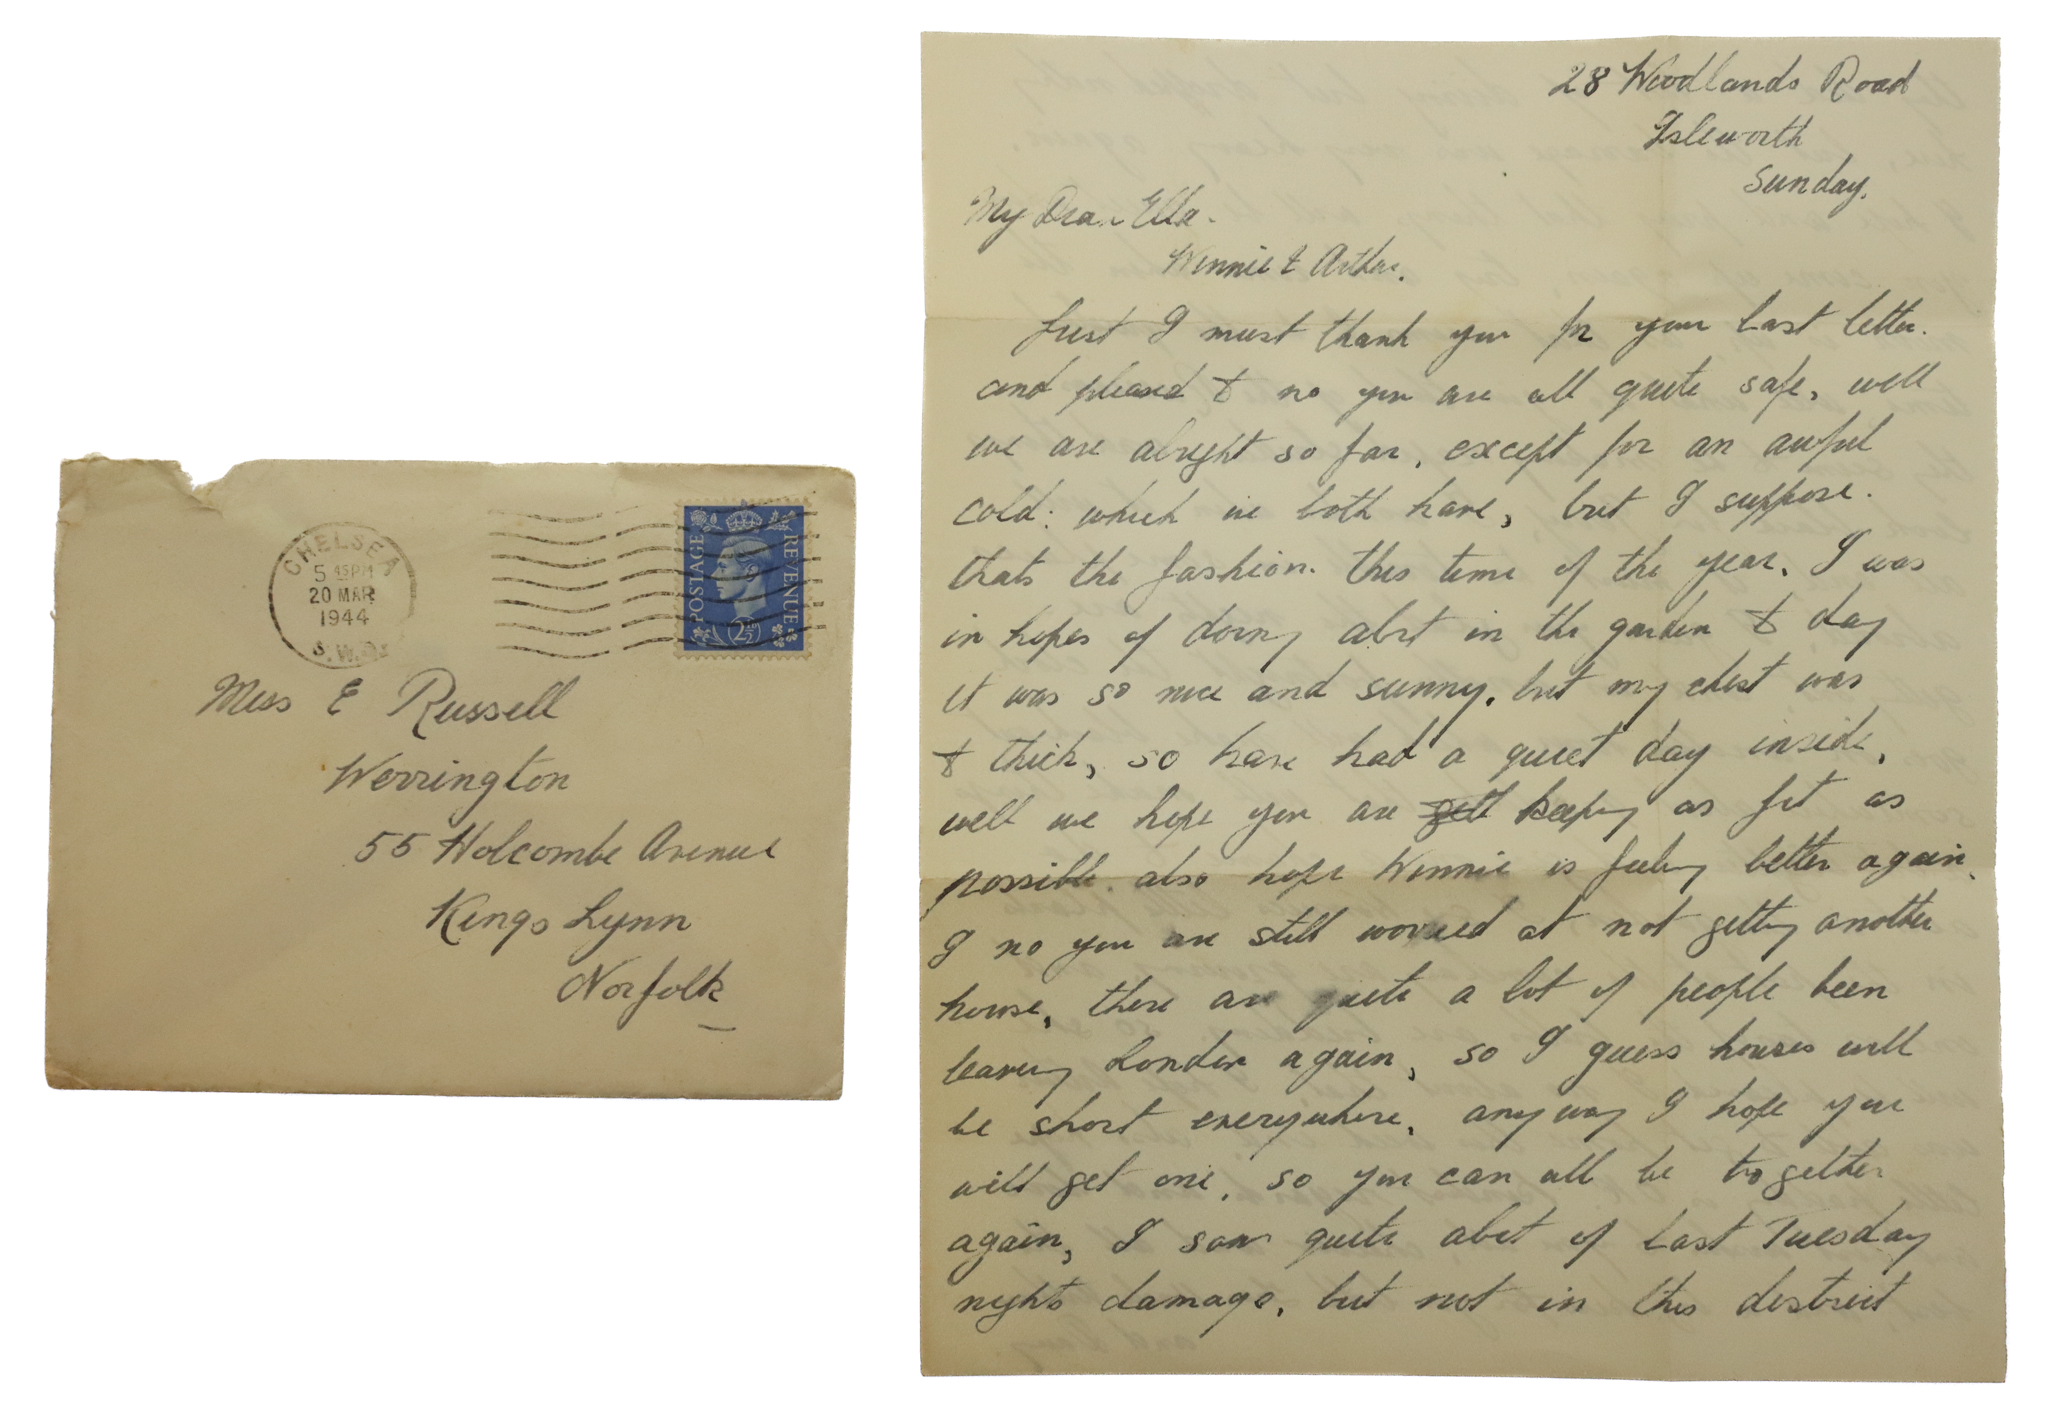 CHELSEA
5 45 PM
20 MAR
1944
S.W.3
POSTAGE
REVENUE
2½D
Miss E Russell
Werrington
55 Holcombe Avenue
Kings Lynn
Norfolk
28 Woodlands Road
Isleworth
Sunday.
My Dear Ella.
Winnie & Arthur.
Just I must thank you for your last letter.
and pleased to no you are all quite safe, well
we are alright so far, except for an awful
cold: which we both have, but I suppose.
thats the fashion. this time of the year. I was
in hopes of doing abit in the garden to day
it was so nice and sunny. but my chest was
to thick, so have had a quiet day inside,
well we hope you are keeping as fit as
possible. also hope Winnie is feeling better again.
I no you are still worried at not getting another
house, there are quite a lot of people been
leaving London again, so I guess houses will
be short everywhere, anyway I hope you
will get one, so you can all be to gether
again, I saw quite abit of last Tuesday
nights damage, but not in this district